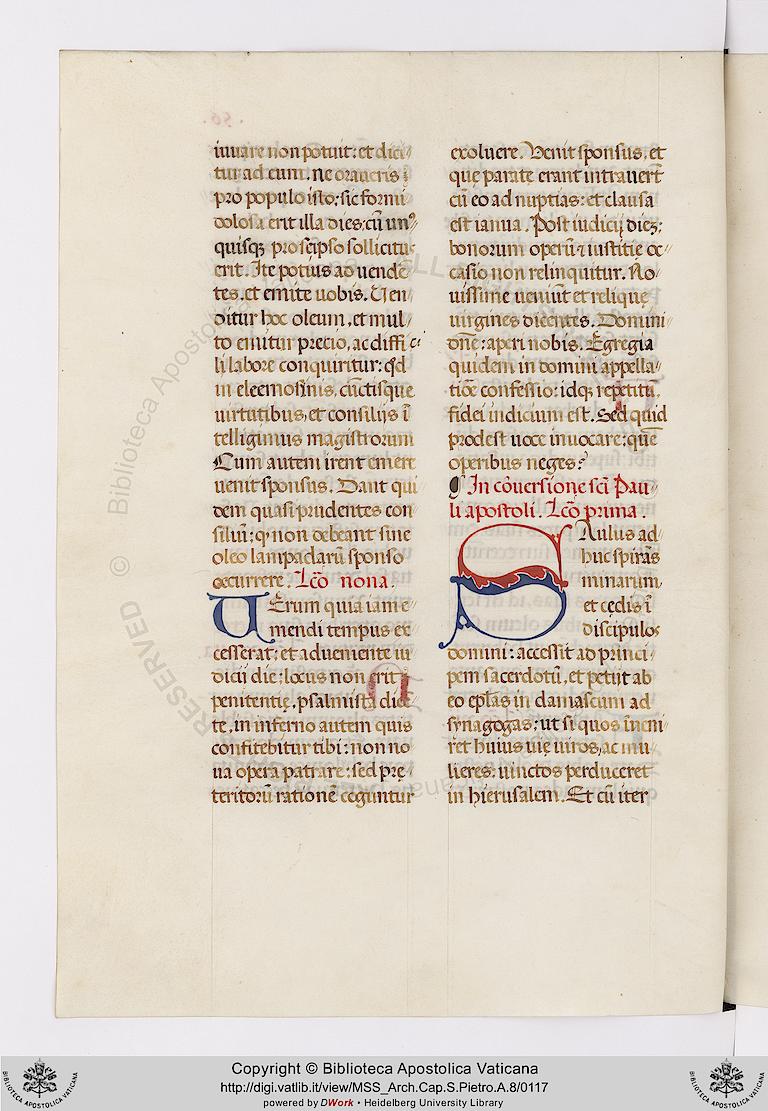 iuuare non potuit: et dici
tur ad eum. ne oraueris
pro populo isto: sic formi
dolosa erit illa dies: cū unꝰ
quisqꝫ pro seipso sollicitus
erit. Ite potius ad uende
tes, et emite uobis. Uen
ditur hoc oleum, et mul
to emitur precio, ac diffi ci
li labore conquiritur: qd
in eleemosinis, cūctisque
uirtutibus, et consilijs ī
telligimus magistrorum
Cum autem irent emere
uenit sponsus. Dant qui
dem quasi prudentes con
siliū: q non debeant sine
oleo lampadarū sponso
occurrere. Lcō nona.
Uerum quia iam e
mendi tempus ex
cesserat: et adueniente iu
dicij die: locus non erit
penitentię, psalmista dice
te, in inferno autem quis
confitebitur tibi: non no
ua opera patrare: sed prę
teritorū rationē coguntur
exoluere. Venit sponsus, et
que parate erant intrauerūt
cū eo ad nuptias: et clausa
est ianua. Post iudicij diez:
bonorum operū ⁊ iustitie oc
casio non relinquitur. No
uissime ueniūt et relique
uirgines dicentes. Domini
dne: aperi nobis. Egregia
quidem in domini appella
tiōe confessio: idqꝫ repetitū,
fidei indicium est. Sed quid
prodest uoce inuocare: quē
operibus neges?
¶ In cōuersione scī Pau
li apostoli. Lcō prima.
SAulus ad
huc spirās
minarum,
et cędis ī
discipulos
domini: accessit ad princi
pem sacerdotū, et petijt ab
eo eplas in damascum ad
synagogas: ut si quos inueni
ret huius uię uiros, ac mu
lieres: uinctos perduceret
in hierusalem. Et cū iter
© Biblioteca Apostolica Vaticana
RESERVED
Copyright © Biblioteca Apostolica Vaticana
http://digi.vatlib.it/view/MSS_Arch.Cap.S.Pietro.A.8/0117
powered by DWork • Heidelberg University Library
BIBLIOTECA APOSTOLICA VATICANA
BIBLIOTECA APOSTOLICA VATICANA